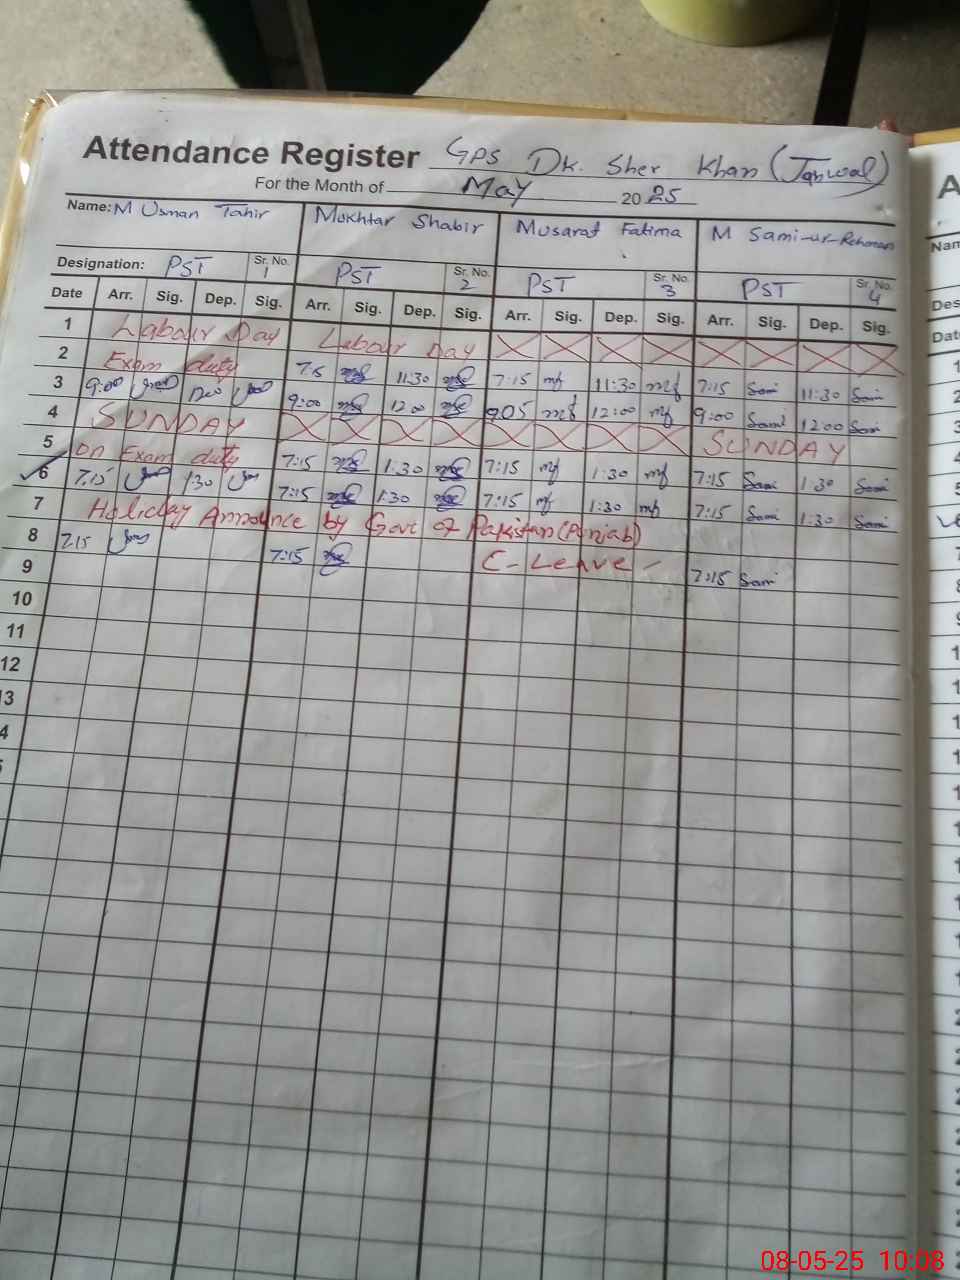 Attendance Register GPS Dk. Sher Khan (Janwal)
For the Month of May 2025
Name: M Usman Tahir Mokhtar Shabir Musarat Fatima M Sami-ur-Rehman
Designation: PST Sr. No. 1 PST Sr. No. 2 PST Sr. No. 3 PST Sr. No. 4
Date Arr. Sig. Dep. Sig. Arr. Sig. Dep. Sig. Arr. Sig. Dep. Sig. Arr. Sig. Dep. Sig.
1 Labour Day Labour Day
2 Exam duty 7:15 11:30 7:15 mf 11:30 mf 7:15 Sami 11:30 Sami
3 9:00 12:00 9:00 12:00 9:05 mf 12:00 mf 9:00 Sami 12:00 Sami
4 SUNDAY SUNDAY
5 on Exam duty 7:15 1:30 7:15 mf 1:30 mf 7:15 Sami 1:30 Sami
6 7:15 1:30 7:15 1:30 7:15 mf 1:30 mf 7:15 Sami 1:30 Sami
7 Holiday Announce by Govt of Pakistan (Punjab)
8 7:15 7:15 C-Leave - 7:15 Sami
9
10
11
12
13
4
5
A
Nam
Des
Dat
08-05-25 10:08